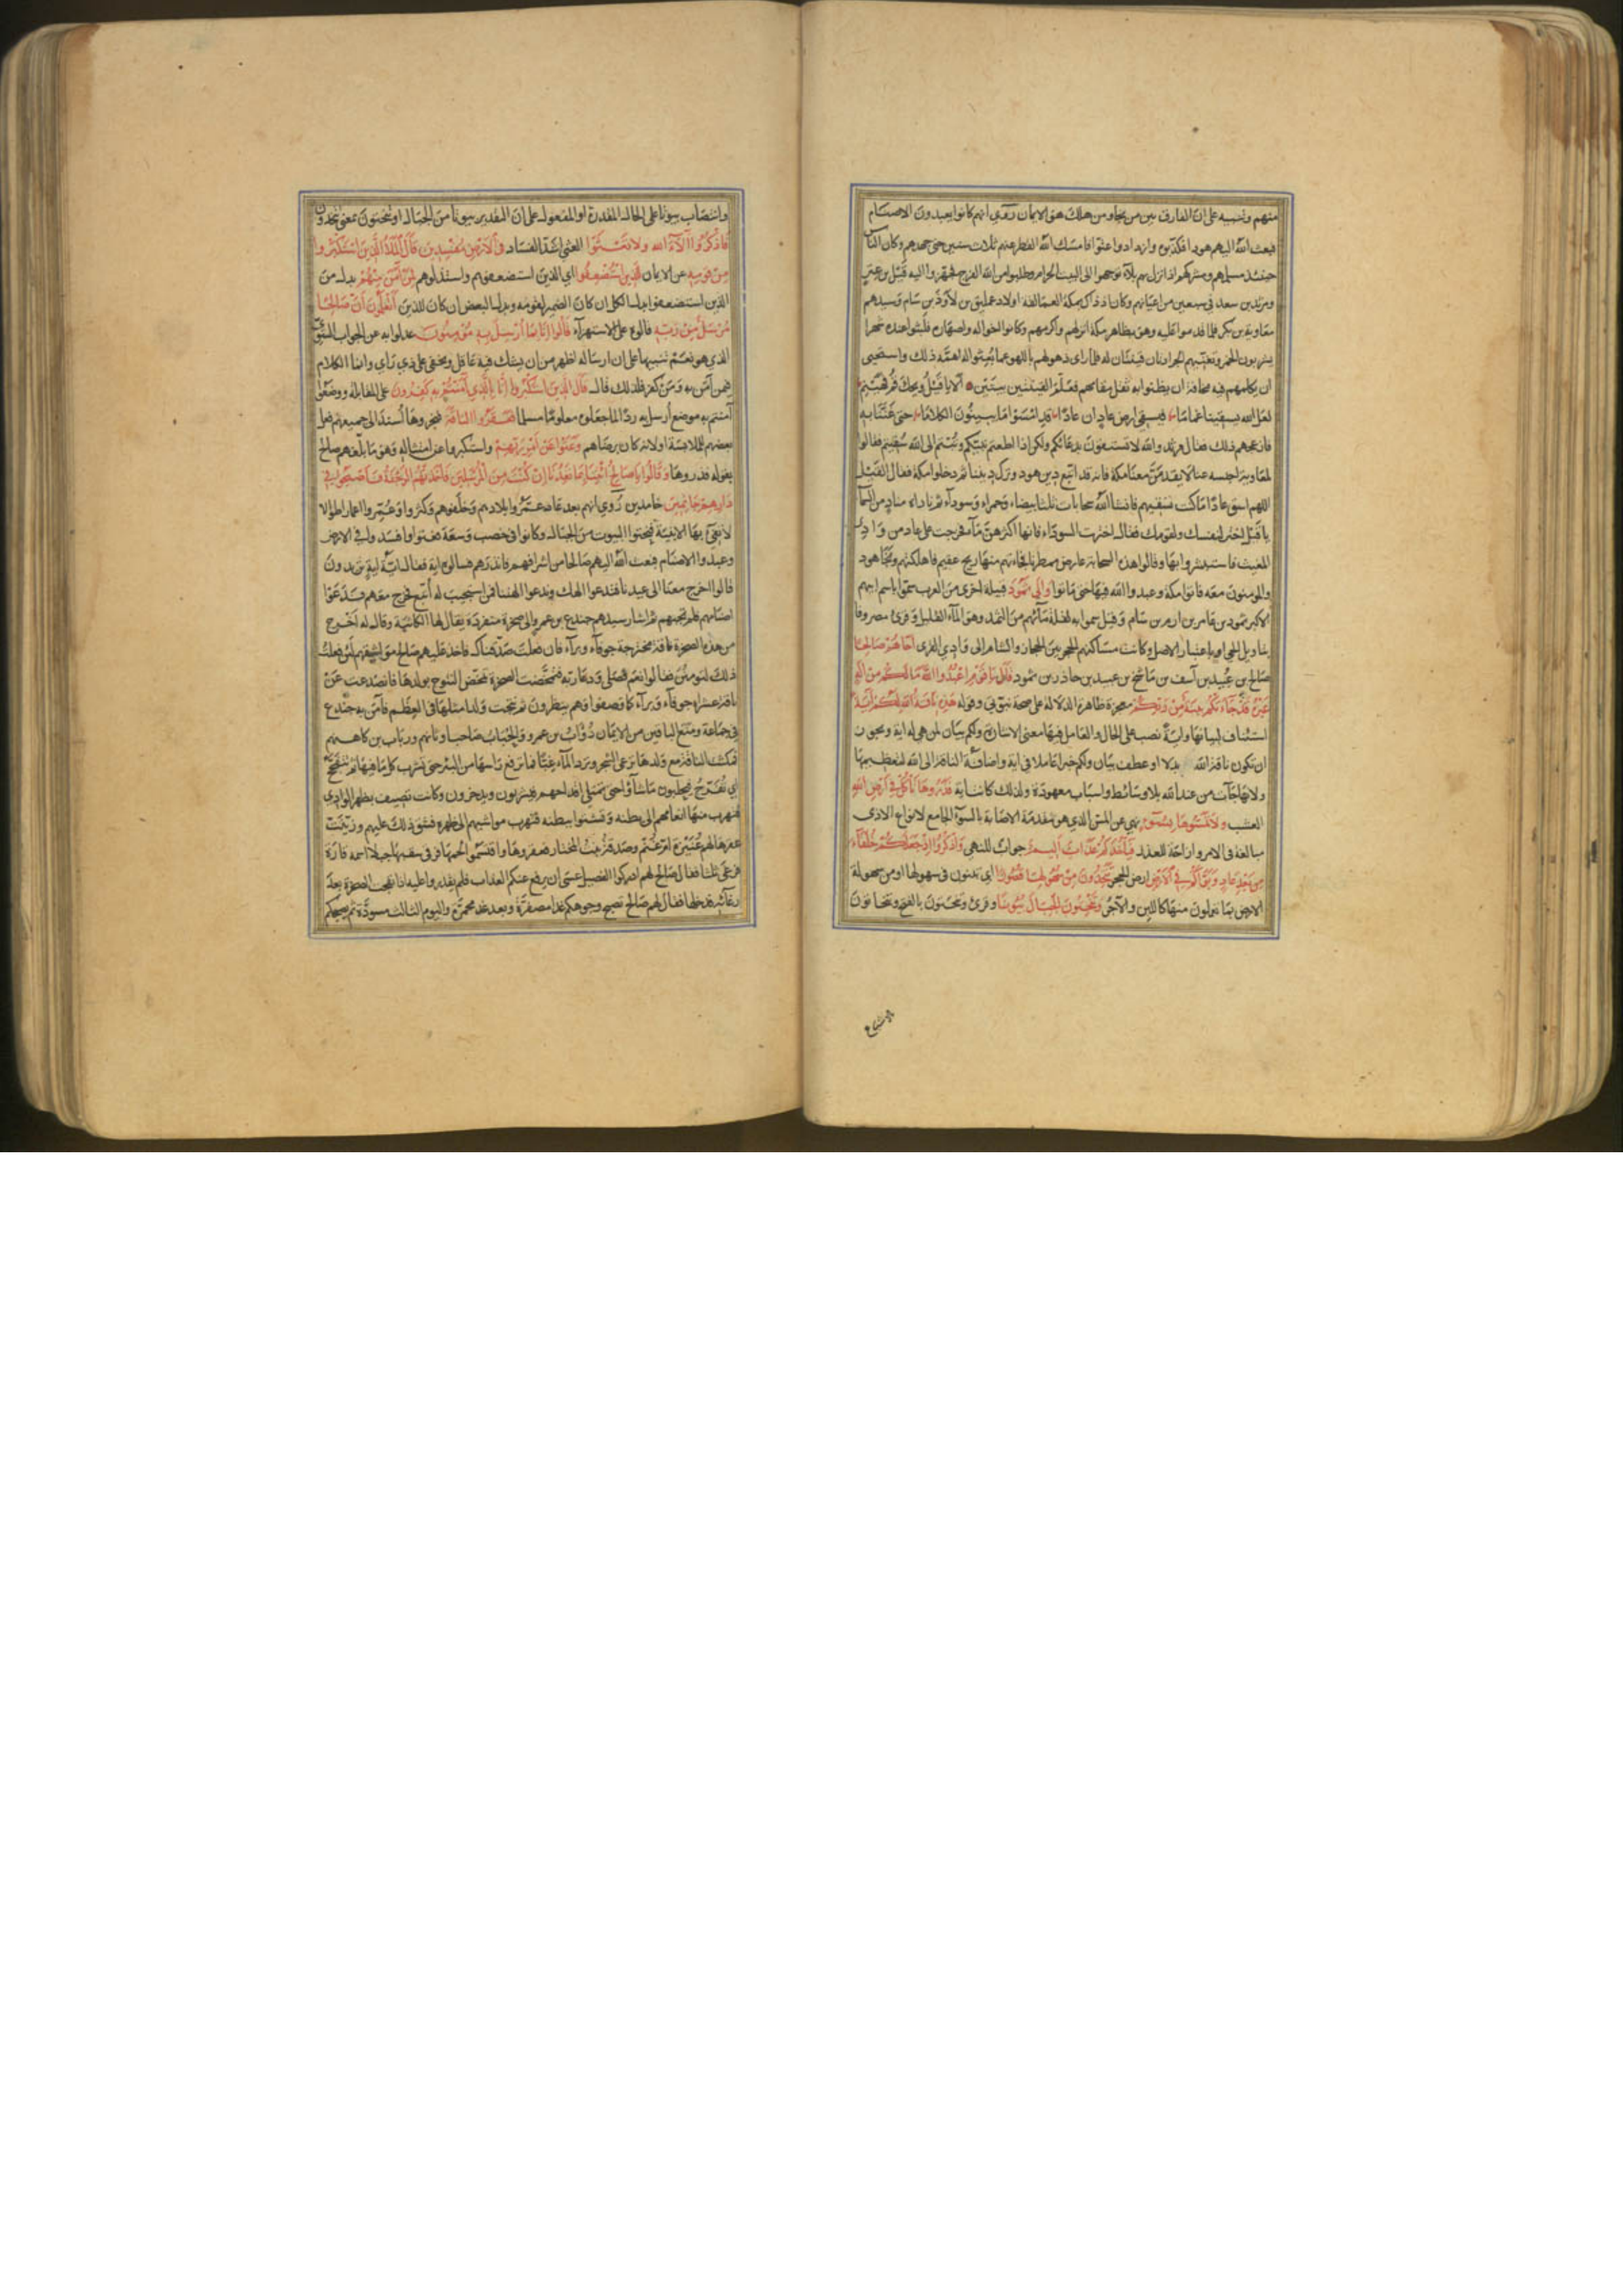 منهم وتنبيه على ان الفارق بين من نجا ومن هلك هو الايمان روي انهم كانوا يعبدون الاصنام
فبعث الله اليهم هودا فكذبوه وازدادوا عتوا فامسك الله القطر عنهم ثلاث سنين حتى جهدهم وكان الناس
حينئذ مسلمهم ومشركهم اذا نزل بهم بلاء توجهوا الى البيت الحرام وطلبوا من الله الفرج فجهزوا اليه قيل بن عنز
ومرثد بن سعد في سبعين من اعيانهم وكان اذ ذاك بمكة العمالقة اولاد عمليق بن لاوذ بن سام وسيدهم
معاوية بن بكر فلما قدموا عليه وهو بظاهر مكة انزلهم واكرمهم وكانوا اخواله واصهاره فلبثوا عنده شهرا
يشربون الخمر وتغنيهم الجرادتان قينتان له فلما راى ذهولهم باللهو عما بعثوا له اهمه ذلك واستحيى
ان يكلمهم فيه مخافة ان يظنوا به ثقل مقامهم فعلم القينتين بيتين الا يا قيل ويحك قم فهينم
لعل الله يسقينا غماما فيسقي ارض عاد ان عادا قد امسوا ما يبينون الكلاما حتى غنتا به
فازعجهم ذلك فقال مرثد والله لا تسقون بدعائكم ولكن اذا اطعتم نبيكم وتبتم الى الله سقيتم فقالوا
لمعاوية احبسه عنا لا يقدمن معنا مكة فانه قد اتبع دين هود وترك ديننا ثم دخلوا مكة فقال القيل
اللهم اسق عادا ما كنت تسقيهم فانشا الله سحابات ثلثا بيضاء وحمراء وسوداء ثم ناداه مناد من السما
يا قيل اختر لنفسك ولقومك فقال اخترت السوداء فانها اكثرهن ماء فخرجت على عاد من وادي
المغيث فاستبشروا بها وقالوا هذه السحابة عارض ممطرنا فجاءتهم منها ريح عقيم فاهلكتهم ونجا هود
والمؤمنون معه فاتوا مكة وعبدوا الله فيها حتى ماتوا والى ثمود قبيلة اخرى من العرب سموا باسم ابيهم
الاكبر ثمود بن عامر بن ارم بن سام وقيل سموا به لقلة مائهم من الثمد وهو الماء القليل وقرئ مصروفا
بتاويل الحي او باعتبار الاصل وكانت مساكنهم الحجر بين الحجاز والشام الى وادي القرى اخاهم صالحا
صالح بن عبيد بن آسف بن ماسخ بن عبيد بن حاذر بن ثمود قال يا قوم اعبدوا الله ما لكم من اله
غيره قد جاءتكم بينة من ربكم معجزة ظاهرة الدلالة على صحة نبوتي وقوله هذه ناقة الله لكم آية
استئناف لبيانها وآية نصب على الحال والعامل فيها معنى الاشارة ولكم بيان لمن هي له اية ويجوز
ان تكون ناقة الله بدلا او عطف بيان ولكم خبرا عاملا في اية واضافة الناقة الى الله لتعظيمها
ولانها جآت من عند الله بلا وسائط واسباب معهودة ولذلك كانت اية فذروها تاكل في ارض الله
العشب ولا تمسوها بسوء نهي عن المس الذي هو مقدمة الاصابة بالسوء الجامع لانواع الاذى
مبالغة في الامر وازاحة للعذر فياخذكم عذاب اليم جواب للنهي واذكروا اذ جعلكم خلفاء
من بعد عاد وبوأكم في الارض ارض الحجر تتخذون من سهولها قصورا اي تبنون في سهولها او من سهولة
الارض بما تعملون منها كاللبن والآجر وتنحتون الجبال بيوتا وقرئ وتنحتون بالفتح وتنحاتون
وانتصاب بيوتا على الحال المقدرة او المفعول على ان التقدير بيوتا من الجبال او تنحتون بمعنى تتخذون
فاذكروا آلاء الله ولا تعثوا العثي اشد الفساد في الارض مفسدين قال الملأ الذين استكبروا
من قومه عن الايمان للذين استضعفوا اي الذين استضعفوهم واستذلوهم لمن آمن منهم بدل من
الذين استضعفوا بدل الكل ان كان الضمير لقومه وبدل البعض ان كان للذين أتعلمون ان صالحا
مرسل من ربه قالوه على الاستهزآء قالوا انا بما ارسل به مؤمنون عدلوا به عن الجواب السوي
الذي هو نعم تنبيها على ان ارساله اظهر من ان يشك فيه عاقل ويخفى على ذي راي وانما الكلام
فيمن آمن به ومن كفر فلذلك قال قال الذين استكبروا انا بالذي آمنتم به كافرون على المقابلة ووضعوا
آمنتم به موضع ارسل به ردا لما جعلوه معلوما مسلما فعقروا الناقة فنحروها اسند الى جميعهم فعل
بعضهم للملابسة او لانه كان برضاهم وعتوا عن امر ربهم واستكبروا عن امتثاله وهو ما بلغهم صالح
بقوله فذروها وقالوا يا صالح ائتنا بما تعدنا ان كنت من المرسلين فاخذتهم الرجفة فاصبحوا في
دارهم جاثمين خامدين روي انهم بعد عاد عمروا بلادهم وخلفوهم وكثروا وعمروا اعمارا طوالا
لا تفي بها الابنية فنحتوا البيوت من الجبال وكانوا في خصب وسعة فعتوا وافسدوا في الارض
وعبدوا الاصنام فبعث الله اليهم صالحا من اشرافهم فانذرهم فسالوه اية فقال اية اية تريدون
قالوا اخرج معنا الى عيدنا فتدعوا الهك وندعوا الهتنا فمن استجيب له اتبع فخرج معهم فدعوا
اصنامهم فلم تجبهم ثم اشار سيدهم جندع بن عمرو الى صخرة منفردة يقال لها الكاثبة وقال له اخرج
من هذه الصخرة ناقة مخترجة جوفاء وبراء فان فعلت صدقناك فاخذ عليهم صالح مواثيقهم لئن فعلت
ذلك لتؤمنن فقالوا نعم فصلى ودعا ربه فتمخضت الصخرة تمخض النتوج بولدها فانصدعت عن
ناقة عشراء جوفاء وبراء كما وصفوا وهم ينظرون ثم نتجت ولدا مثلها في العظم فآمن به جندع
في جماعة ومنع الباقين من الايمان ذؤاب بن عمرو والحباب صاحب اوثانهم ورباب بن كاهنهم
فمكثت الناقة مع ولدها ترعى الشجر وترد الماء غبا فما ترفع راسها من البئر حتى تشرب كل ما فيها ثم تتفحج
اي تنفرج فيحلبون ما شاؤا حتى تمتلي اوانيهم فيشربون ويدخرون وكانت تصيف بظهر الوادي
فتهرب منها انعامهم الى بطنه وتشتوا ببطنه فتهرب مواشيهم الى ظهره فشق ذلك عليهم وزينت
عقرها لهم عنيزة ام غنم وصدقة بنت المختار فعقروها واقتسموا لحمها فرقى سقبها جبلا اسمه قارة
فرغى ثلثا فقال صالح لهم ادركوا الفصيل عسى ان يرفع عنكم العذاب فلم يقدروا عليه اذ انفجت الصخرة بعد
رغائه فدخلها فقال لهم صالح تصبح وجوهكم غدا مصفرة وبعد غد محمرة واليوم الثالث مسودة ثم يصبحكم